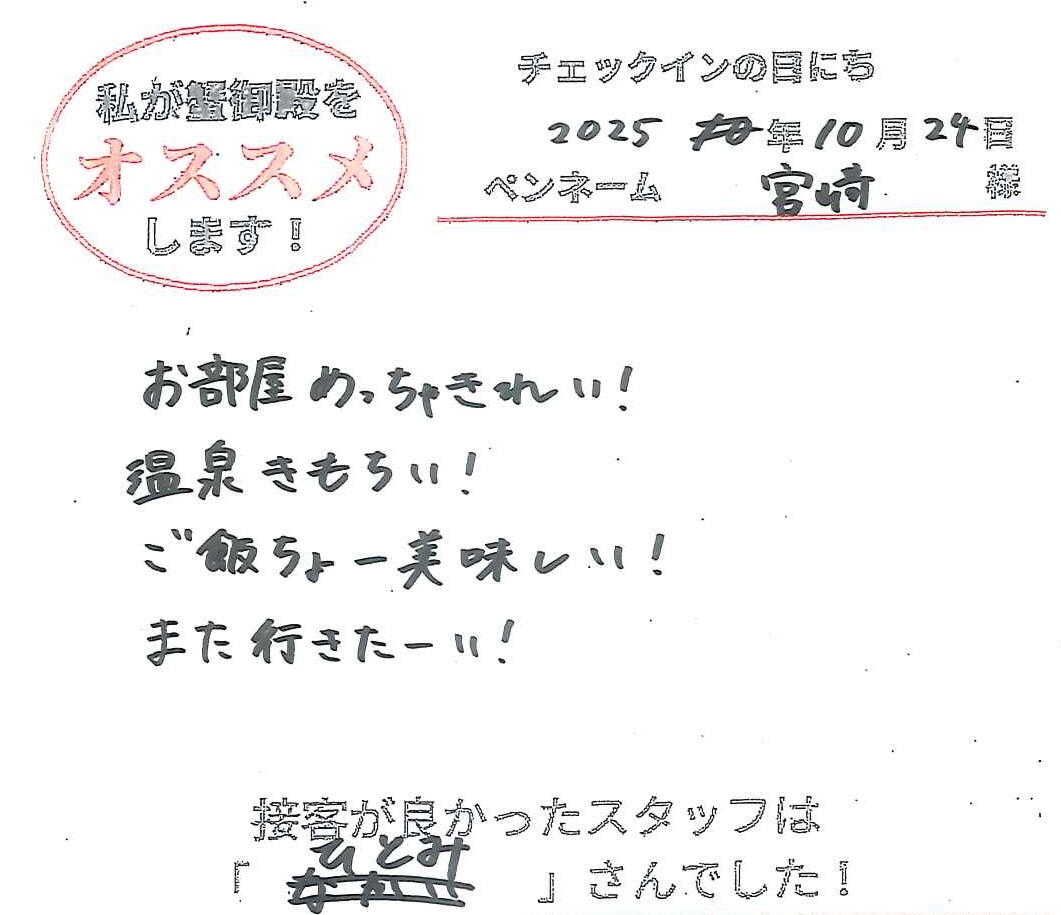 私が蟹御殿を
オススメ
します！
チェックインの日にち
2025 年10月24日
ペンネーム 宮崎 様
お部屋めっちゃきれい！
温泉きもちい！
ご飯ちょー美味しい！
また行きたーい！
接客が良かったスタッフは
「ひとみ」さんでした！